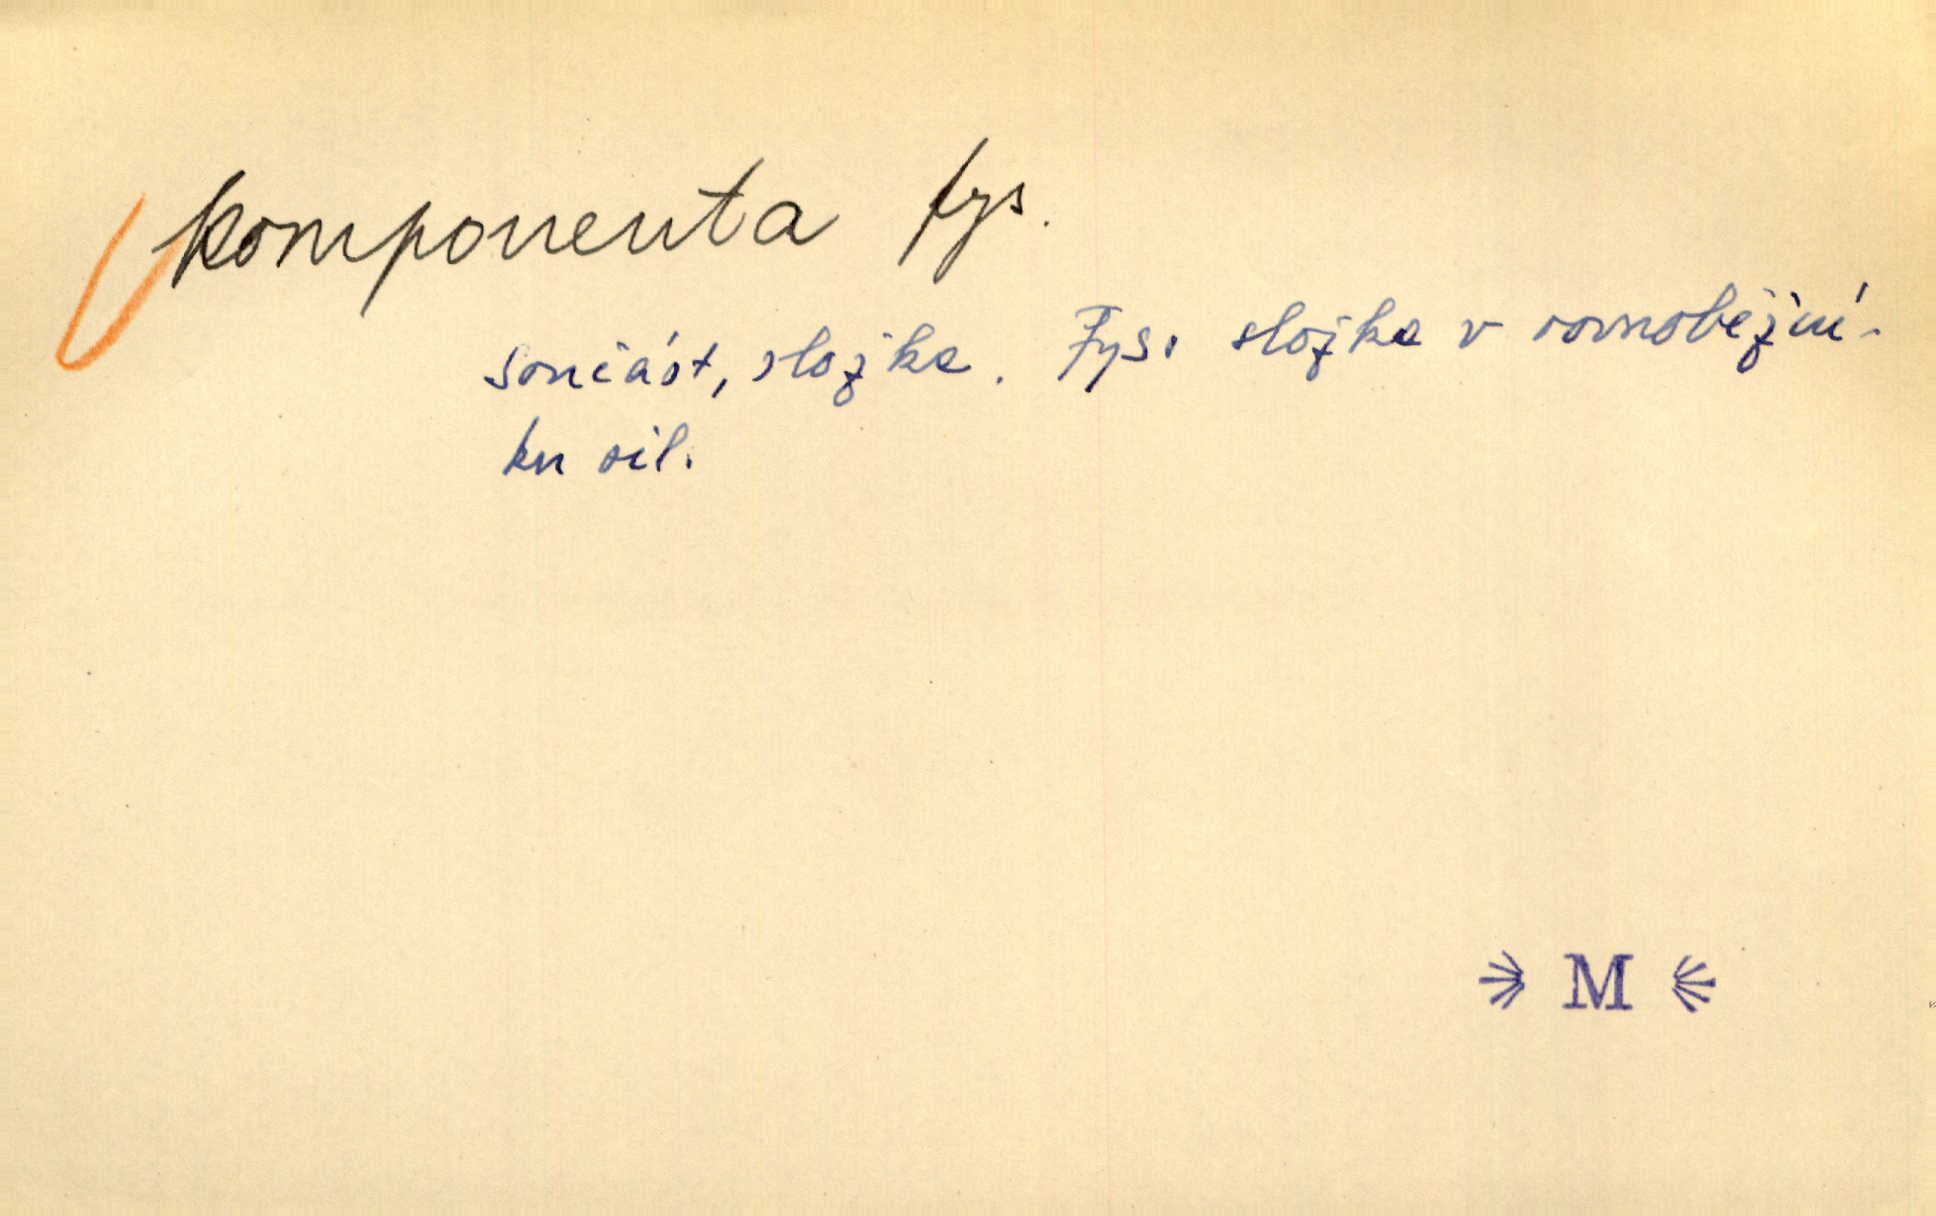 komponenta fys.
součást, složka. Fys. složka v rovnoběžní-
ku sil.
M